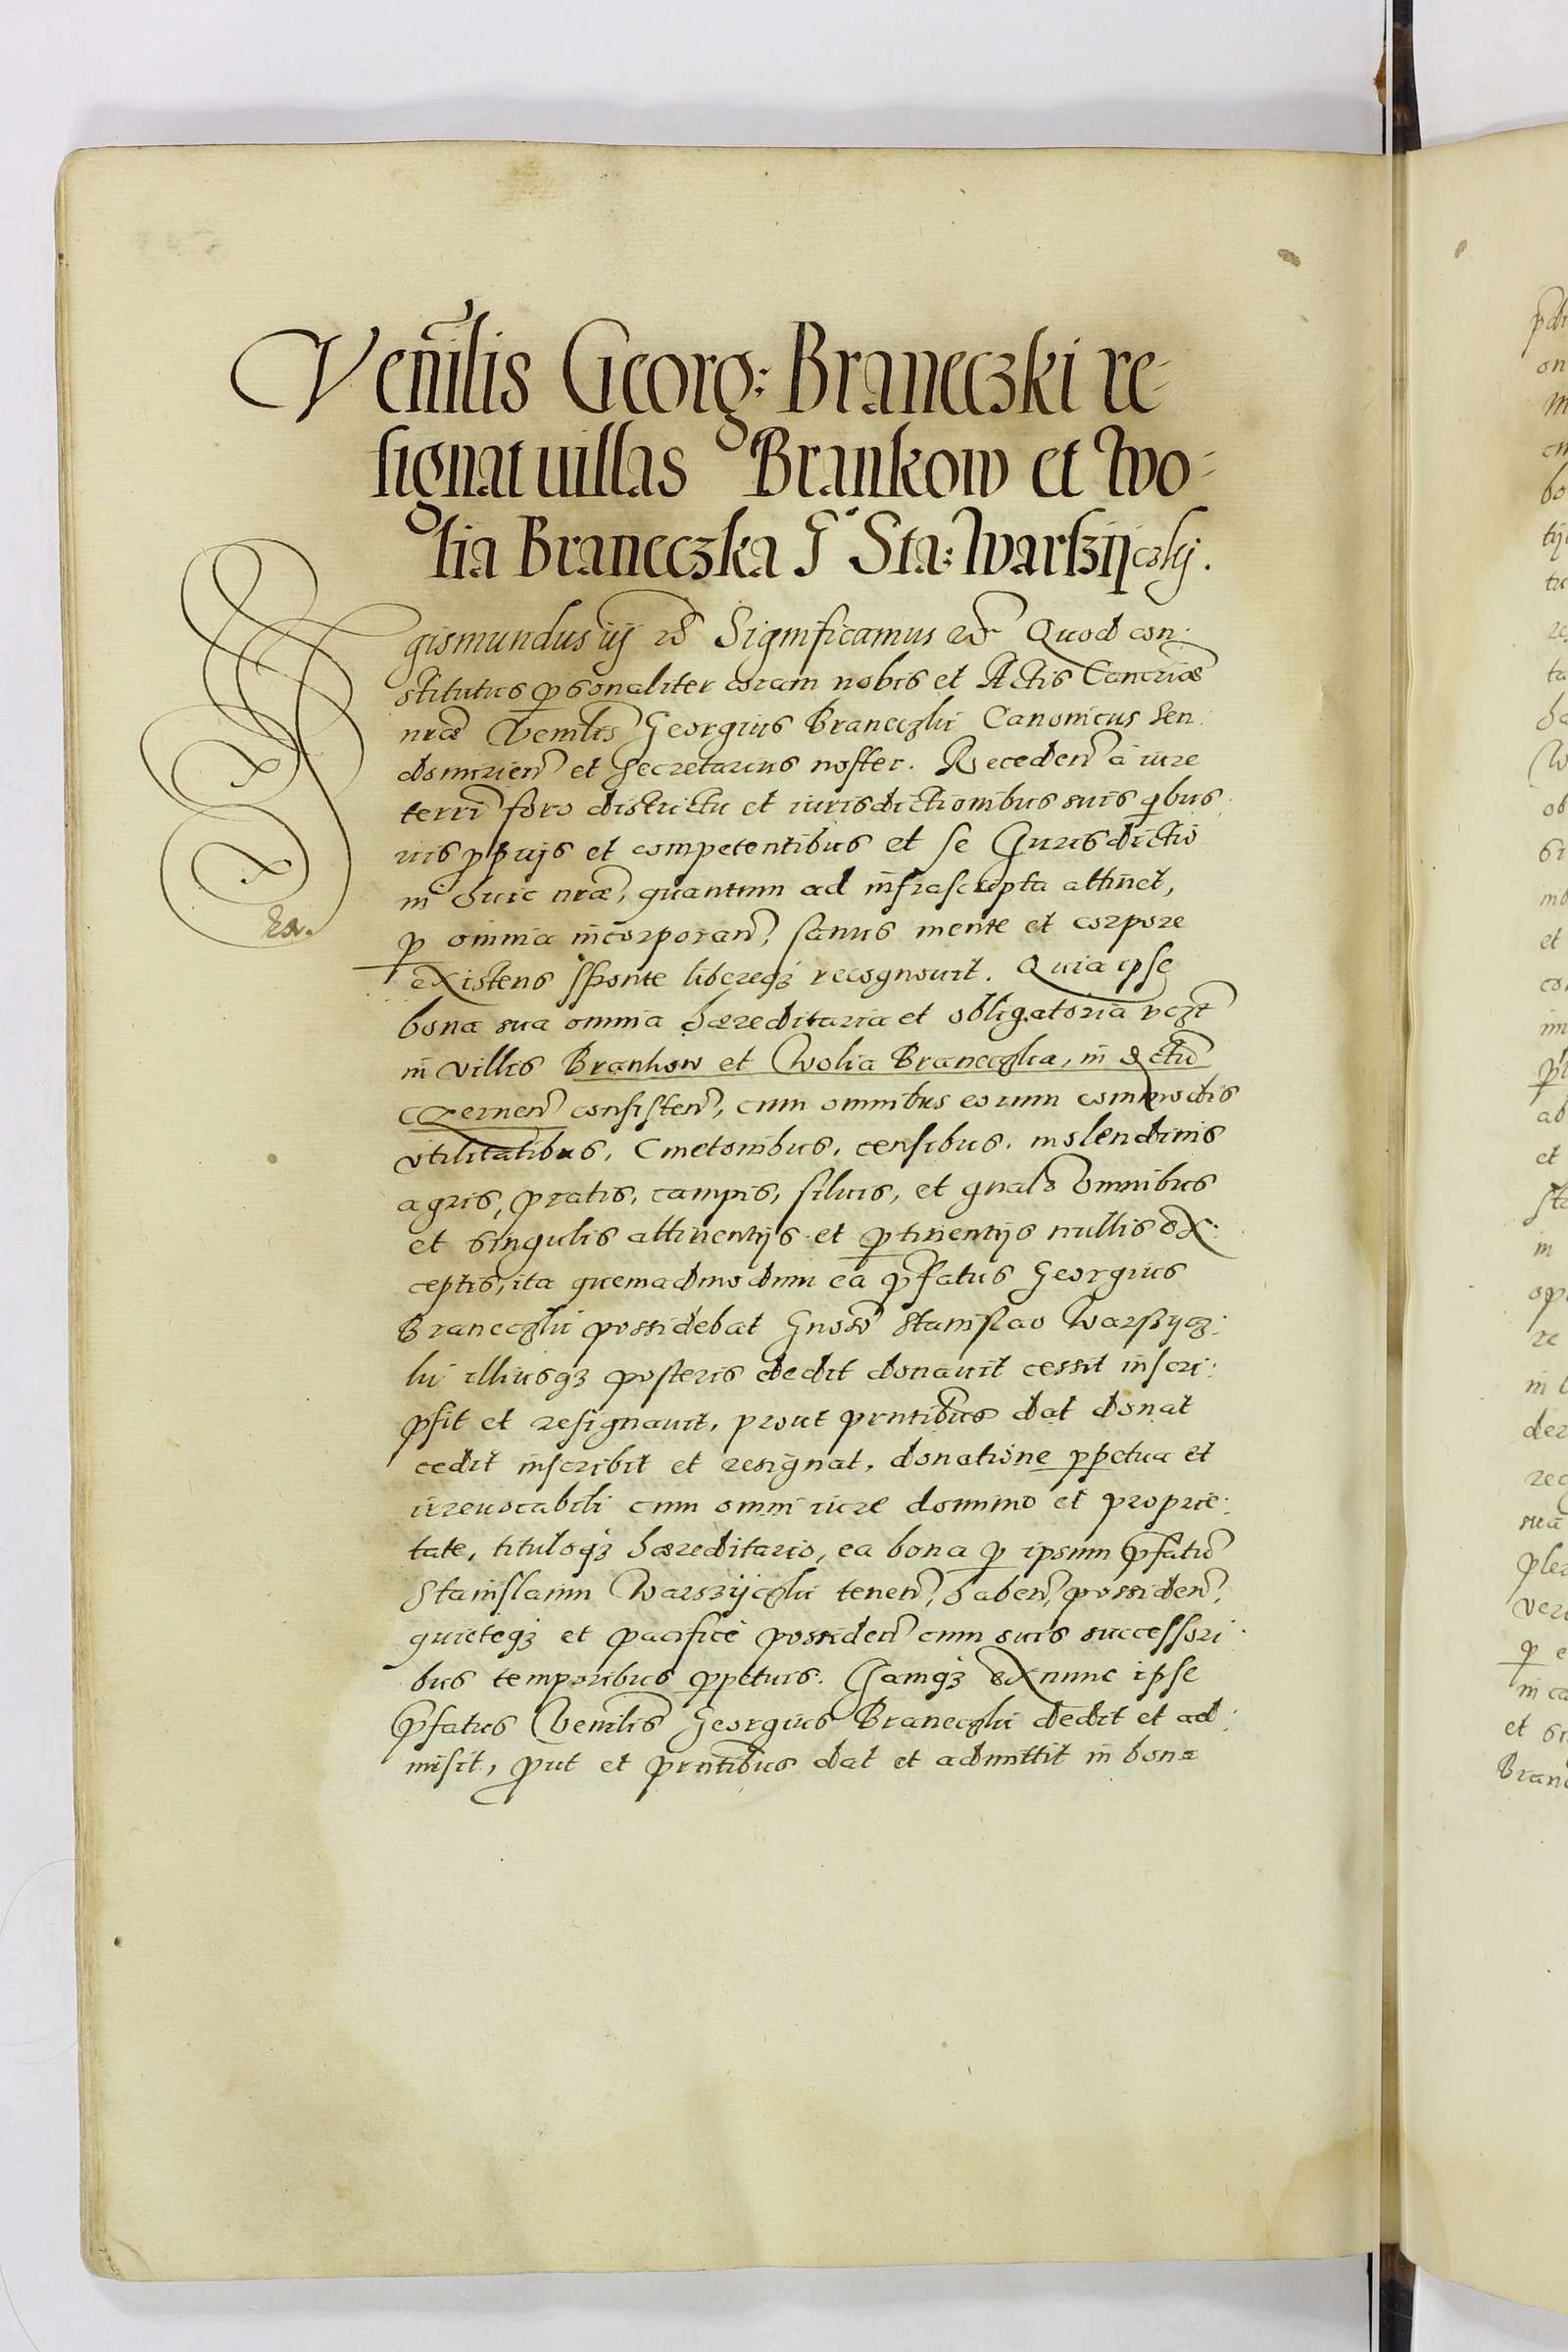 Veñilis Georg: Braneczki re-
signat uillas Brankow et Wo-
lia Braneczka G° Sta: Warszijczkj.
Sigismundus iij etc Significamus etc Quod con-
stitutus psonaliter coram nobis et Actis Cancriæ
nræ Venilis Georgius Braneczki Canonicus Sen-
domirien et Secretarius noster. Receden à iure
terri foro districtu et iurisdictionibus suis qbus-
uis ppuijs et competentibus et se Jurisdictio
ni huic nræ, quantum ad infrascripta attinet,
p omnia incorporan, sanus mente et corpore
existens sponte libereqz recognouit. Quia ipse
bona sua omnia hæreditaria et obligatoria vczt
in villis Brankow et Wolia Braneczka, in dctu
Czernen consisten, cum omnibus eorum commodis
vtilitatibus, Cmetonibus, censibus, molendinis
agris, pratis, campis, siluis, et gnalr omnibus
et singulis attinentijs et ptinentijs nullis ex-
ceptis, ita quemadmodum ea pfatus Georgius
Braneczki possidebat Gnoso Stanislao Warszycz-
ki illiusqz posteris dedit donauit cessit inscri-
psit et resignauit, prout pntibus dat donat
cedit inscribit et resignat, donatione ppetua et
irreuocabili cum omni iure dominio et proprie-
tate, tituloqz hæreditario, ea bona p ipsum pfatu
Stanislaum Warszijczki tenen, haben, possiden,
quieteqz et pacifice possiden cum suis successori-
bus temporibus ppetuis. Jamqz ex nunc ipse
pfatus Venilis Georgius Braneczki dedit et ad-
misit, put et pntibus dat et admittit in bona